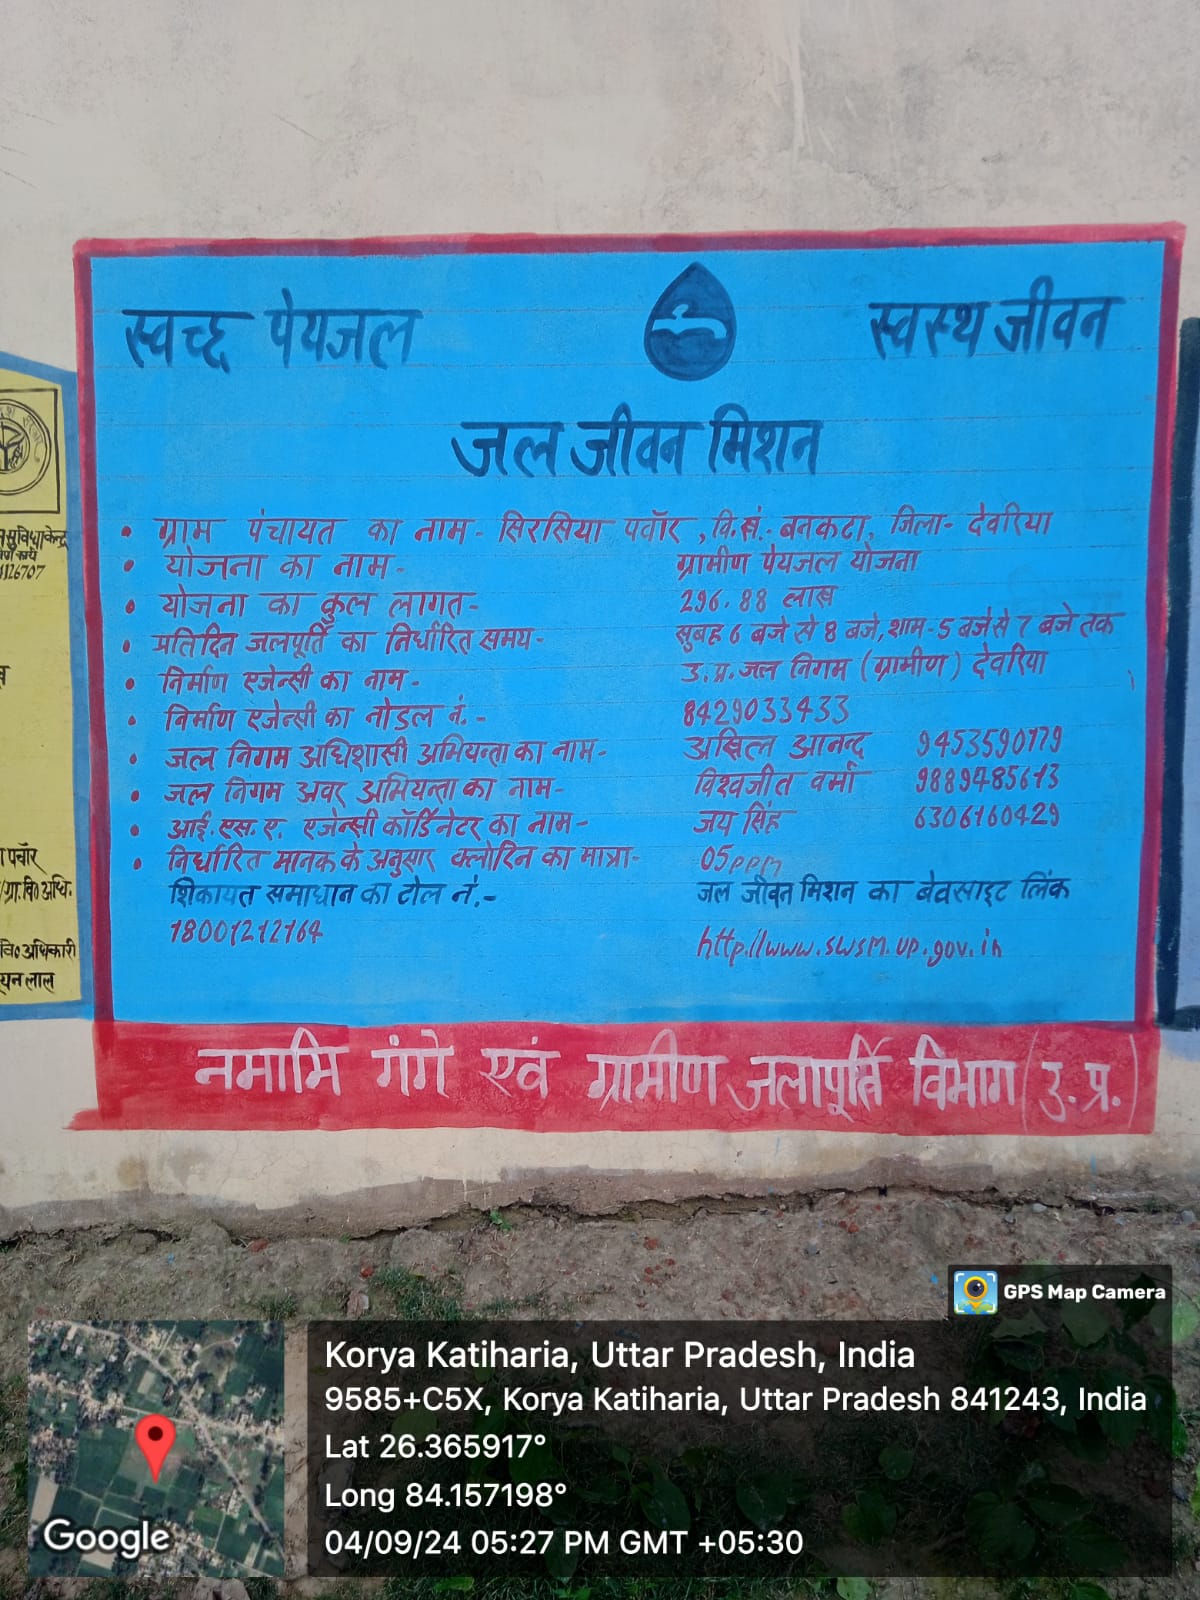 स्वच्छ पेयजल
स्वस्थ जीवन
जल जीवन मिशन
• ग्राम पंचायत का नाम- सिरसिया पवाँर, वि.खं.- बनकटा, जिला- देवरिया
• योजना का नाम- ग्रामीण पेयजल योजना
• योजना का कुल लागत- 296.88 लाख
• प्रतिदिन जलपूर्ति का निर्धारित समय- सुबह 6 बजे से 8 बजे, शाम-5 बजे से 7 बजे तक
• निर्माण एजेन्सी का नाम- उ.प्र.जल निगम (ग्रामीण) देवरिया
• निर्माण एजेन्सी का नोडल नं.- 8429033433
• जल निगम अधिशासी अभियन्ता का नाम- अखिल आनन्द 9453590179
• जल निगम अवर अभियन्ता का नाम- विश्वजीत वर्मा 9889485613
• आई.एस.ए. एजेन्सी कॉर्डिनेटर का नाम- जय सिंह 6306160429
• निर्धारित मानक के अनुसार क्लोरिन का मात्रा- 05ppm
शिकायत समाधान का टोल नं.- जल जीवन मिशन का बेवसाइट लिंक
18001212164 http.//www.swsm.up.gov.in
नमामि गंगे एवं ग्रामीण जलापूर्ति विभाग (उ.प्र.)
सुविधा केन्द्र
1126707
पवाँर
ग्रा.वि० अधि.
वि० अधिकारी
लाल
GPS Map Camera
Korya Katiharia, Uttar Pradesh, India
9585+C5X, Korya Katiharia, Uttar Pradesh 841243, India
Lat 26.365917°
Long 84.157198°
04/09/24 05:27 PM GMT +05:30
Google